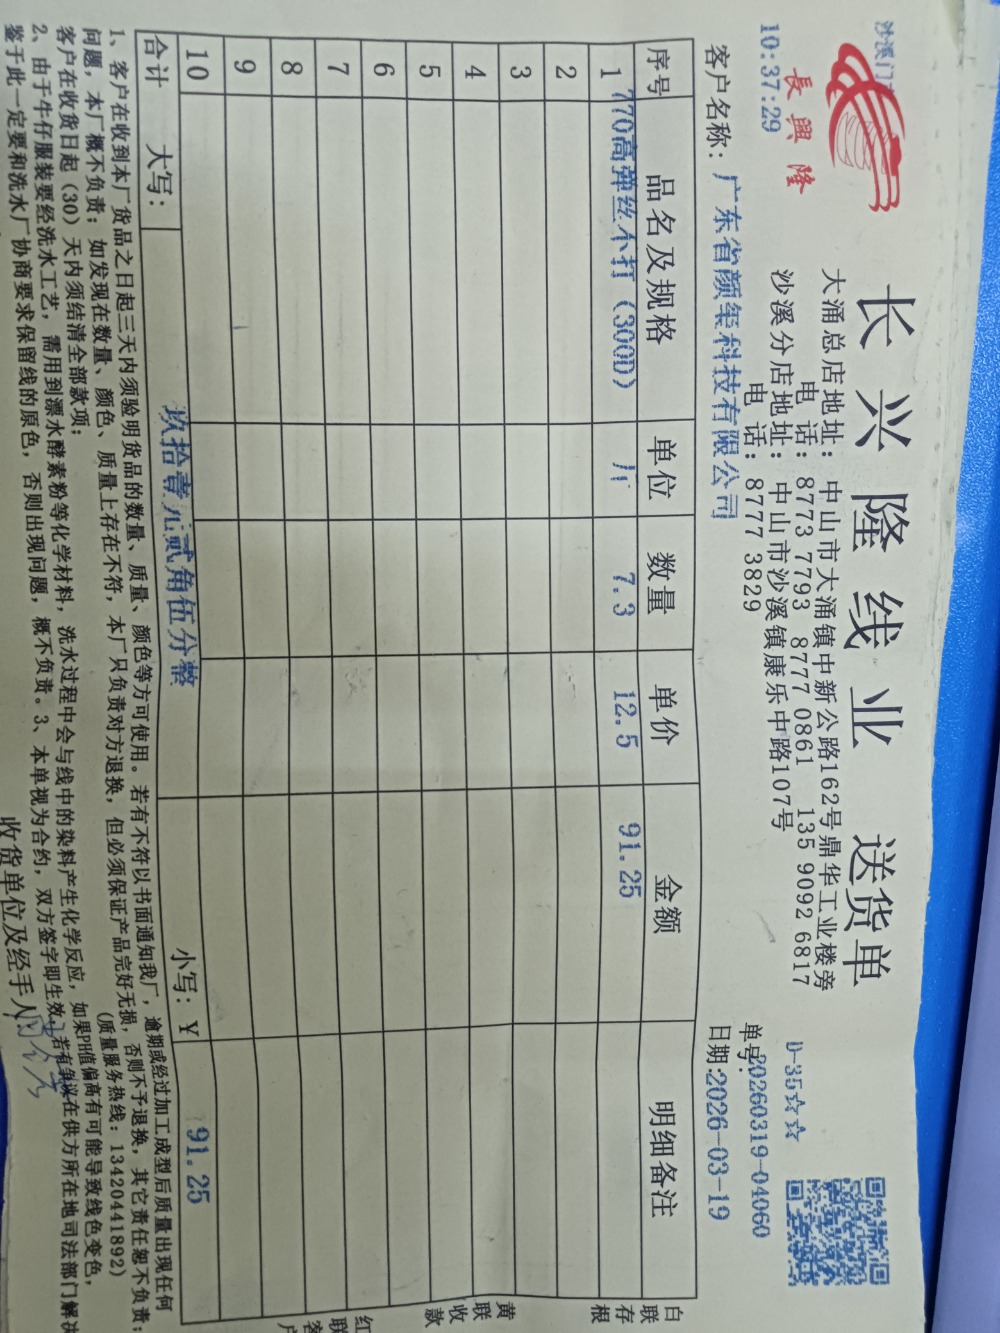 沙溪门
10:37:29
長興隆
长兴隆线业 送货单
D-35☆☆
大涌总店地址：中山市大涌镇中新公路162号鼎华工业楼旁
电 话：8773 7793 8777 0861 135 9092 6817
沙溪分店地址：中山市沙溪镇康乐中路107号
电 话：8777 3829
单号：20260319-04060
客户名称：广东省颜玺科技有限公司
日期:2026-03-19
序号 品名及规格 单位 数量 单价 金额 明细备注
1 770高弹丝不打（300D） 7.3 12.5 91.25
2
3
4
5
6
7
8
9
10
合计 大写： 玖拾壹元贰角伍分整 小写：￥ 91.25
白联存根
黄联收款
红联客户
1、客户在收到本厂货品之日起三天内须验明货品的数量、质量、颜色等方可使用。若有不符以书面通知我厂，逾期或经过加工成型后质量出现任何
问题，本厂概不负责；如发现在数量、颜色、质量上存在不符，本厂只负责对方退换，但必须保证产品完好无损，否则不予退换，其它责任恕不负责；
客户在收货日起（30）天内须结清全部款项；
(质量服务热线：13420441892)
2、由于牛仔服装要经洗水工艺，需用到漂水酵素粉等化学材料，洗水过程中会与线中的染料产生化学反应，如果PH值偏高有可能导致线色变色，
鉴于此一定要和洗水厂协商要求保留线的原色，否则出现问题，概不负责。3、本单视为合约，双方签字即生效，若有争议在供方所在地司法部门解决
收货单位及经手人